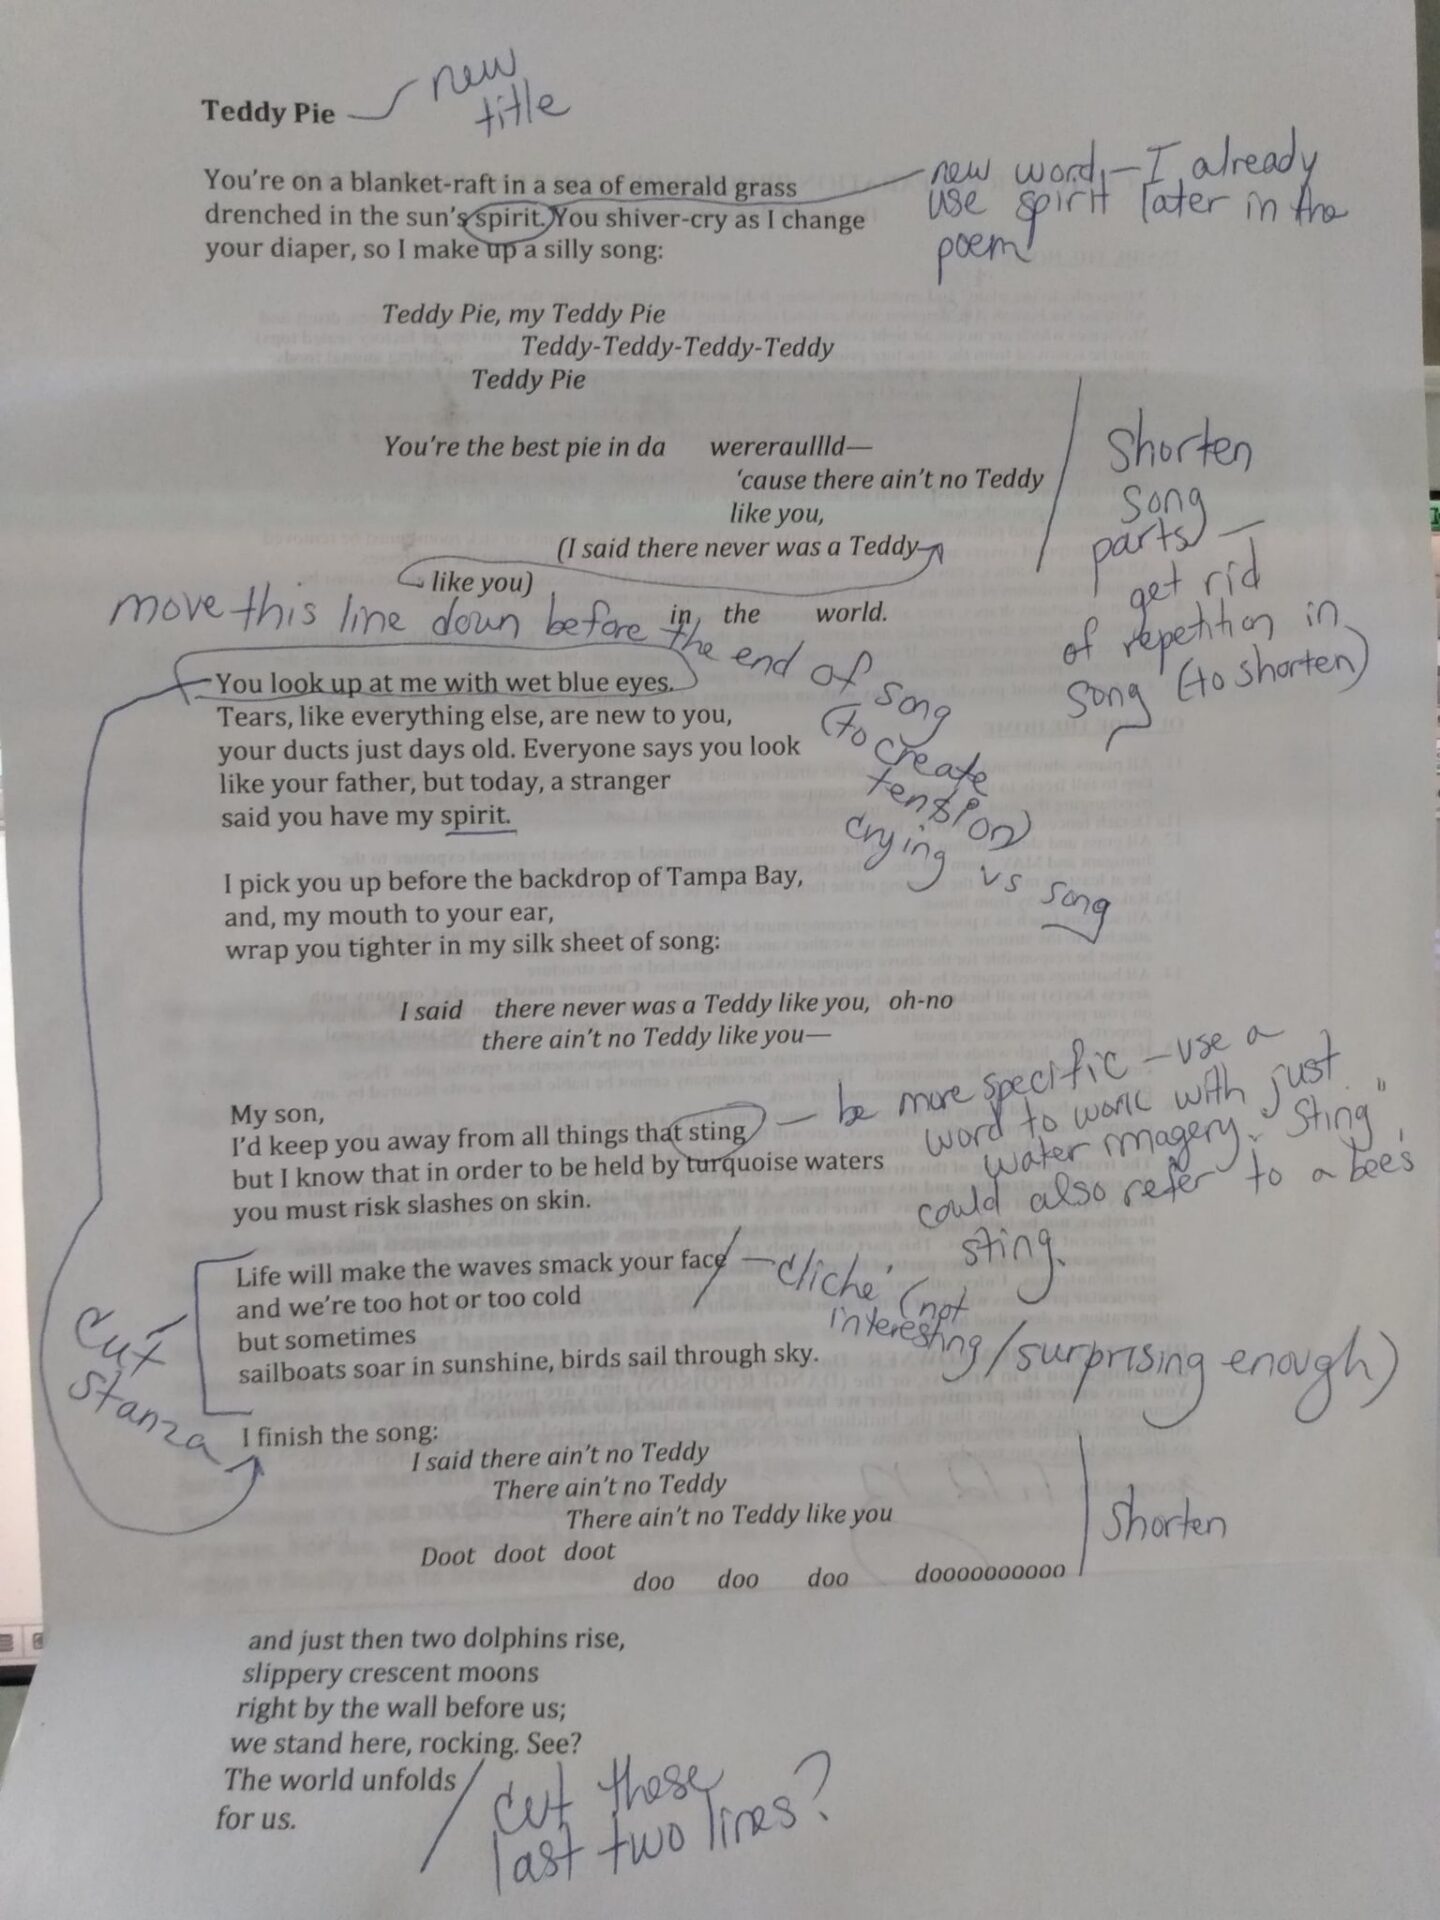 Teddy Pie
new
title
You're on a blanket-raft in a sea of emerald grass
drenched in the sun's spirit. You shiver-cry as I change
your diaper, so I make up a silly song:
new word – I already
use spirit later in the
poem
Teddy Pie, my Teddy Pie
Teddy-Teddy-Teddy-Teddy
Teddy Pie
You're the best pie in da wereraullld—
'cause there ain't no Teddy
like you,
(I said there never was a Teddy
like you)
in the world.
Shorten
song
parts –
get rid
of repetition in
song (to shorten)
move this line down before the end of song
(to create
tension)
crying vs song
You look up at me with wet blue eyes.
Tears, like everything else, are new to you,
your ducts just days old. Everyone says you look
like your father, but today, a stranger
said you have my spirit.
I pick you up before the backdrop of Tampa Bay,
and, my mouth to your ear,
wrap you tighter in my silk sheet of song:
I said there never was a Teddy like you, oh-no
there ain't no Teddy like you—
My son,
I'd keep you away from all things that sting
but I know that in order to be held by turquoise waters
you must risk slashes on skin.
– be more specific – use a
word to work with just
water imagery. "Sting"
could also refer to a bee's
sting.
Life will make the waves smack your face
and we're too hot or too cold
but sometimes
sailboats soar in sunshine, birds sail through sky.
– cliche' (not
interesting/surprising enough)
cut
stanza
I finish the song:
I said there ain't no Teddy
There ain't no Teddy
There ain't no Teddy like you
Doot doot doot
doo doo doo doooooooooo
Shorten
and just then two dolphins rise,
slippery crescent moons
right by the wall before us;
we stand here, rocking. See?
The world unfolds
for us.
cut these
last two lines?